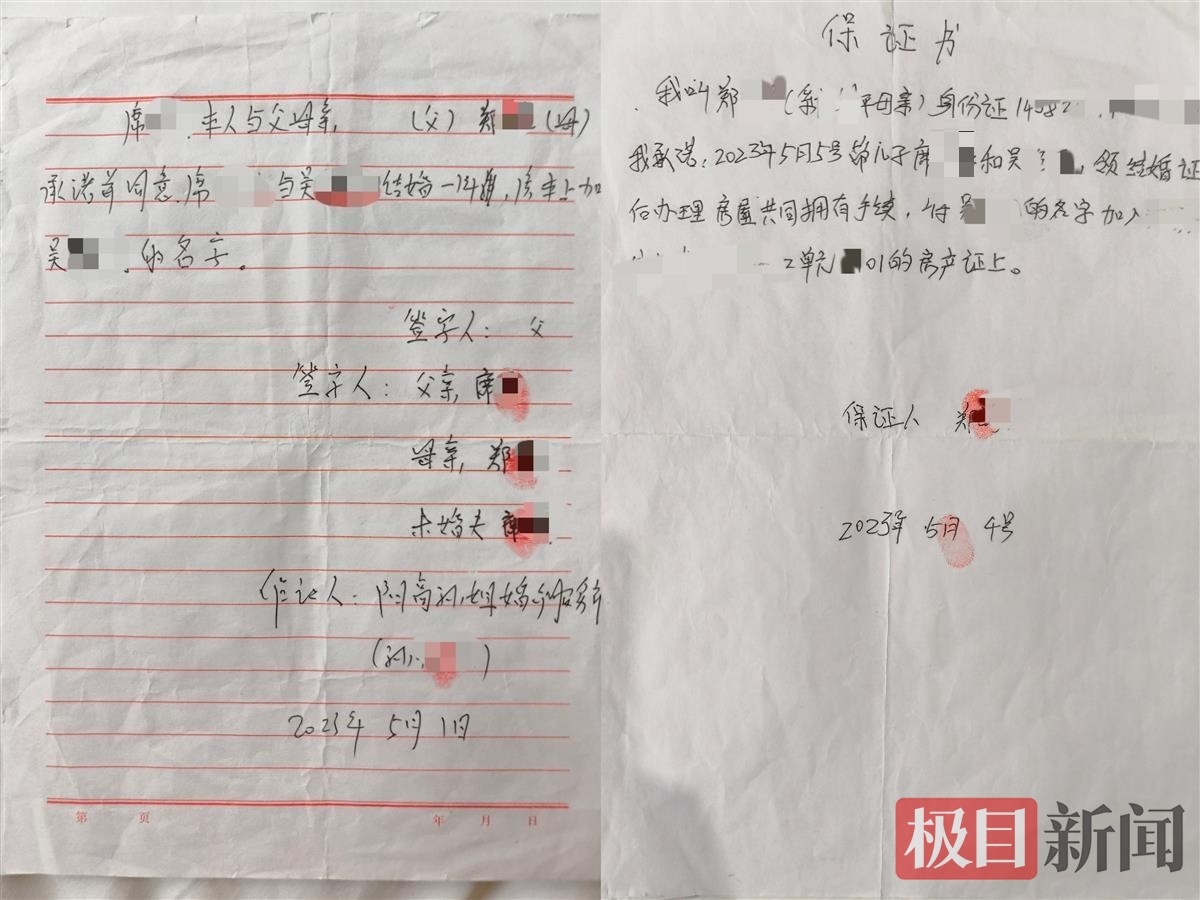 席 本人与父母亲, (父) 郑 (母)
承诺并同意.席 与吴 结婚一年载,房本上加
吴 的名字。
签字人: 父
签字人: 父亲, 席
母亲, 郑
未婚夫 席
作证人:
(孙小 )
2023年 5月 1日
第 页 年 月 日
保证书
我叫郑 ( 平母亲) 身份证14082
我承诺:2023年5月5号 儿子席 和吴 领结婚证
后办理房屋共同拥有手续,将吴 的名字加入
2单元 01的房产证上。
保证人 郑
2023年 5月 4号
极目新闻